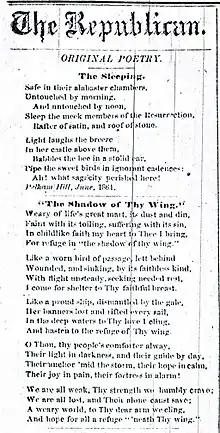 The Republican.
ORIGINAL POETRY.
The Sleeping.
Safe in their alabaster chambers,
Untouched by morning,
And untouched by noon,
Sleep the meek members of the Resurrection,
Rafter of satin, and roof of stone.
Light laughs the breeze
In her castle above them,
Babbles the bee in a stolid ear,
Pipe the sweet birds in ignorant cadence:
Ah! what sagacity perished here!
Pelham Hill, June, 1861.
"The Shadow of Thy Wing."
Weary of life's great mart, its dust and din,
Faint with its toiling, suffering with its sin,
In childlike faith my heart to Thee I bring,
For refuge in "the shadow of thy wing."
Like a worn bird of passage, left behind
Wounded, and sinking, by its faithless kind,
With flight unsteady, seeking needed rest,
I come for shelter to Thy faithful breast.
Like a proud ship, dismantled by the gale,
Her banners lost and rifted every sail,
In the deep waters to Thy love I cling,
And hasten to the refuge of Thy wing.
O Thou, thy people's comforter alway,
Their light in darkness, and their guide by day,
Their anchor 'mid the storm, their hope in calm,
Their joy in pain, their fortress in alarm!
We are all weak, Thy strength we humbly crave;
We are all lost, and Thou alone canst save;
A weary world, to Thy dear arm we cling,
And hope for all a refuge "neath Thy wing."